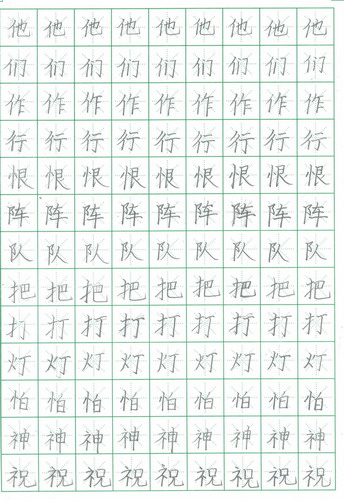 他他他他他他他他他
们们们们们们们们们
作作作作作作作作作
行行行行行行行行行
恨恨恨恨恨恨恨恨恨
阵阵阵阵阵阵阵阵阵
队队队队队队队队队
把把把把把把把把把
打打打打打打打打打
灯灯灯灯灯灯灯灯灯
怕怕怕怕怕怕怕怕怕
神神神神神神神神神
祝祝祝祝祝祝祝祝祝